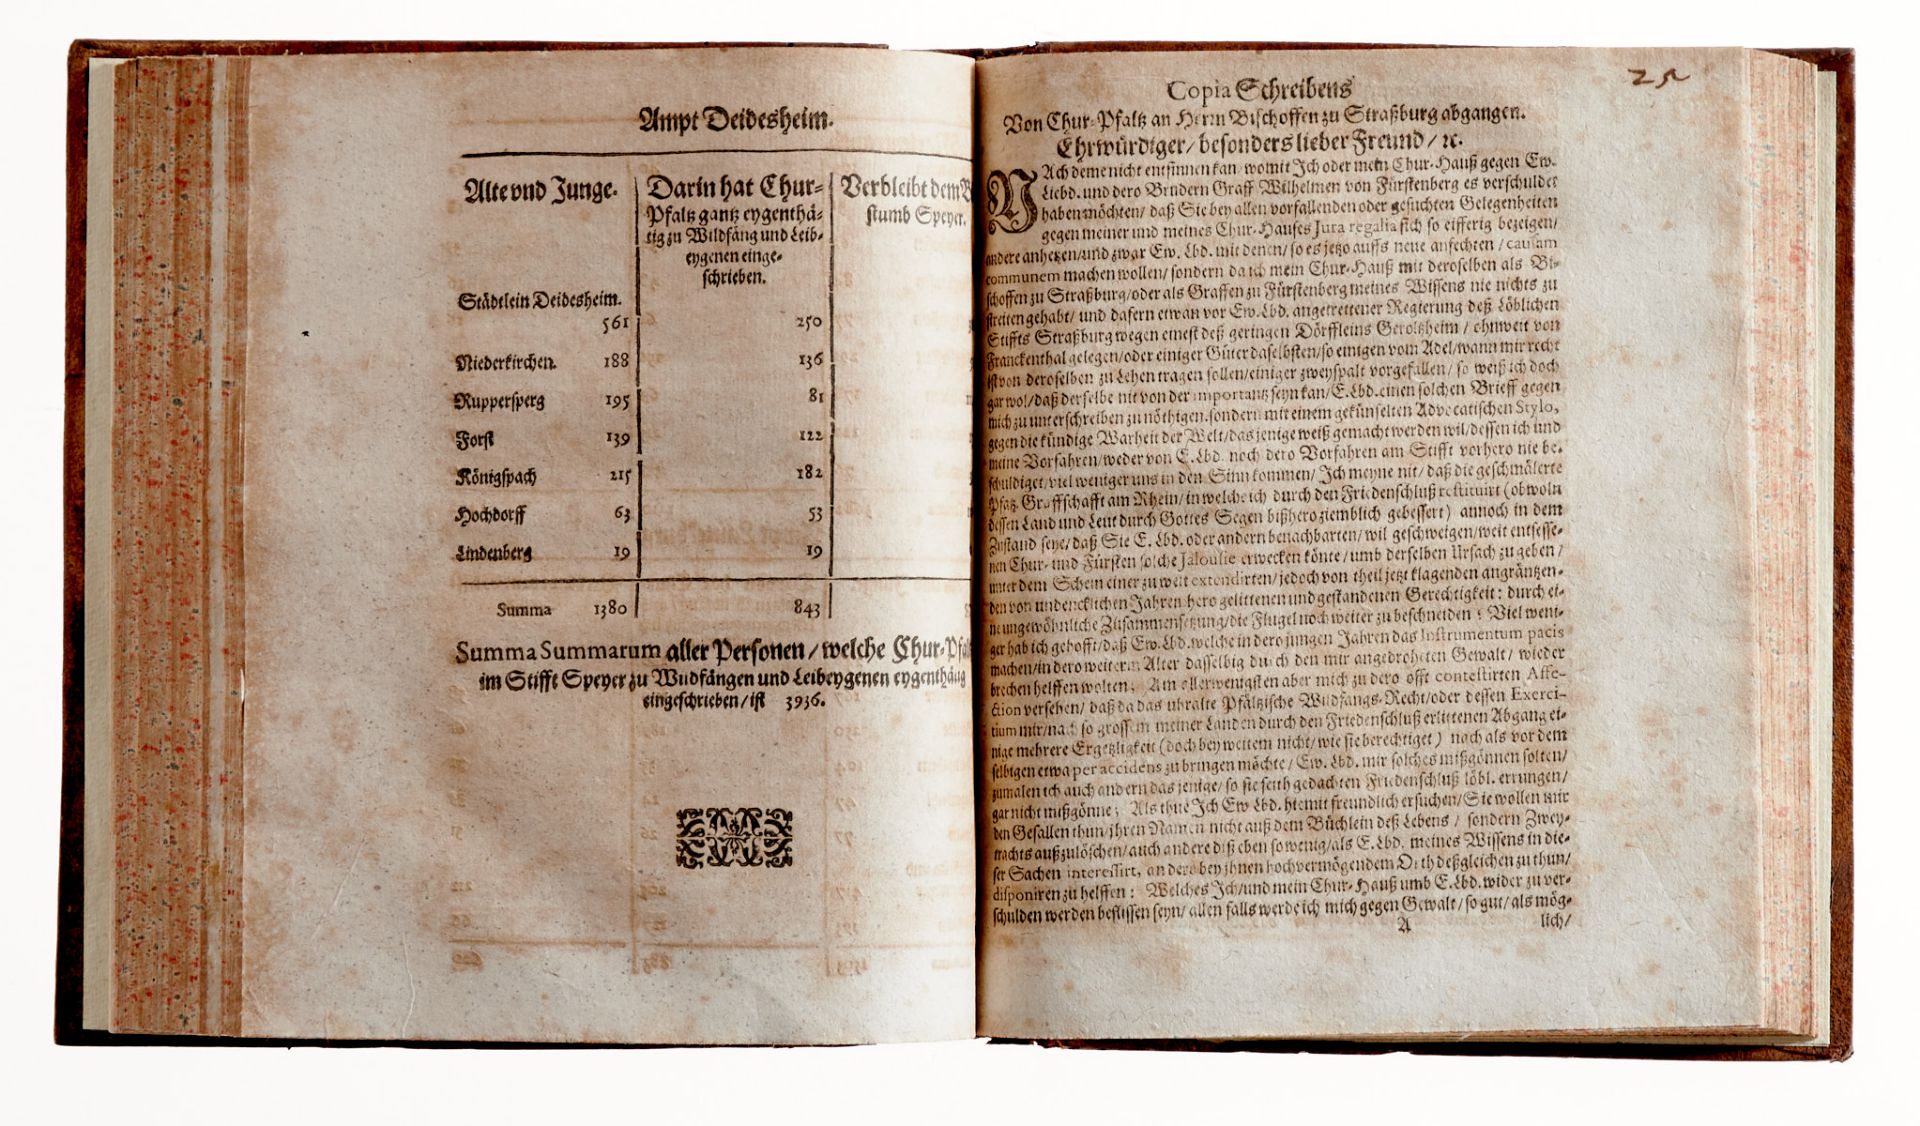 Ampt Deidesheim.
Alte vnd Junge.
Darin hat Chur-
Pfaltz gantz eygenthä-
tig zu Wildfäng und Leib-
eygenen einge-
schrieben.
Verbleibt dem B
stumb Speyer.
Städtlein Deidesheim.
561 250
Niederkirchen. 188 136
Ruppersperg 195 81
Forst 139 122
Königspach 215 182
Hochdorff 63 53
Lindenberg 19 19
Summa 1380 843
Summa Summarum aller Personen / welche Chur-Pfal
im Stifft Speyer zu Wildfängen und Leibeygenen eygenthätig
eingeschrieben / ist 3936.
25
Copia Schreibens
Von Chur-Pfaltz an Herrn Bischoffen zu Straßburg abgangen.
Ehrwürdiger / besonders lieber Freund / ꝛc.
NAch deme nicht entsinnen kan / womit Ich oder mein Chur-Hauß gegen Ew.
Liebd. und dero Brudern Graff Wilhelmen von Fürstenberg es verschuldet
haben möchten / daß Sie bey allen vorfallenden oder gesuchten Gelegenheiten
gegen meiner und meines Chur-Hauses Jura regalia sich so eifferig bezeigen /
andere anhetzen / und zwar Ew. Lbd. mit denen / so es jetzo auffs neue anfechten / causam
communem machen wollen / sondern da ich mein Chur-Hauß mit deroselben als Bi-
schoffen zu Straßburg / oder als Graffen zu Fürstenberg meines Wissens nie nichts zu
streiten gehabt / und dafern etwan vor Ew. Lbd. angetrettener Regierung deß Löblichen
Stiffts Straßburg wegen einest deß geringen Dörffleins Geroltzheim / ohnweit von
Franckenthal gelegen / oder einiger Güter daselbsten / so einigen vom Adel / wann mir recht
ist von deroselben zu Lehen tragen sollen / einiger zweyspalt vorgefallen / so weiß ich doch
gar wol / daß derselbe nit von der importantz seyn kan / E. Lbd. einen solchen Brieff gegen
mich zu unterschreiben zu nöthigen. sondern mit einem gekünselten Advocatischen Stylo,
gegen die kündige Warheit der Welt / das jenige weiß gemacht werden wil / dessen ich und
meine Vorfahren / weder von E. Lbd. noch dero Vorfahren am Stifft vorhero nie be-
schuldiget / viel weniger uns in den Sinn kommen / Ich meyne nit / daß die geschmälerte
Pfaltz-Graffschafft am Rhein / in welche ich durch den Friedenschluß restituirt (obwoln
dessen Land und Leut durch Gottes Segen bißhero ziemblich gebessert) annoch in dem
Zustand seye / daß Sie E. Lbd. oder andern benachbarten / wil geschweigen / weit entsesse-
nen Chur- und Fürsten solche Jalousie erwecken könte / umb derselben Ursach zu geben /
unter dem Schein einer zu weit extendirten / jedoch von theil jetzt klagenden angräntzen-
den von undencklichen Jahren hero gelittenen und gestandenen Gerechtigkeit: durch ei-
ne ungewöhnliche Zusammensetzung / die Flügel noch weiter zu beschneiden: Viel weni-
ger hab ich gehofft / daß Ew. Lbd. welche in dero jungen Jahren das Instrumentum pacis
machen / in dero weiterm Alter dasselbig durch den mir angedroheten Gewalt / wieder
brechen helffen wolten; Am allerwenigsten aber mich zu dero offt contestirten Affe-
ction versehen / daß da das uhralte Pfältzische Wildfangs-Recht / oder dessen Exerci-
tium mir / nach so grossem meiner Landen durch den Friedenschluß erlittenen Abgang ei-
nige mehrere Ergetzligkeit (doch bey weitem nicht / wie sie berechtiget) nach als vor dem
selbigen etwa per accidens zu bringen möchte / Ew. Lbd. mir solches mißgönnen solten /
zumalen ich auch andern das jenige / so sie seith gedachten Friedenschluß löbl. errungen /
gar nicht mißgönne; Als thue Ich Ew Lbd. hiemit freundlich ersuchen / Sie wollen mir
den Gefallen thun / ihren Namen nicht auß dem Büchlein deß Lebens / sondern Zwey-
trachts außzulöschen / auch andere diß eben so wenig / als E. Lbd. meines Wissens in die-
ser Sachen interessirt, an dero bey ihnen hochvermögendem Orth deßgleichen zu thun /
disponiren zu helffen: Welches Ich / und mein Chur-Hauß umb E. Lbd. wider zu ver-
schulden werden beflissen seyn / allen falls werde ich mich gegen Gewalt / so gut / als mög-
A lich /